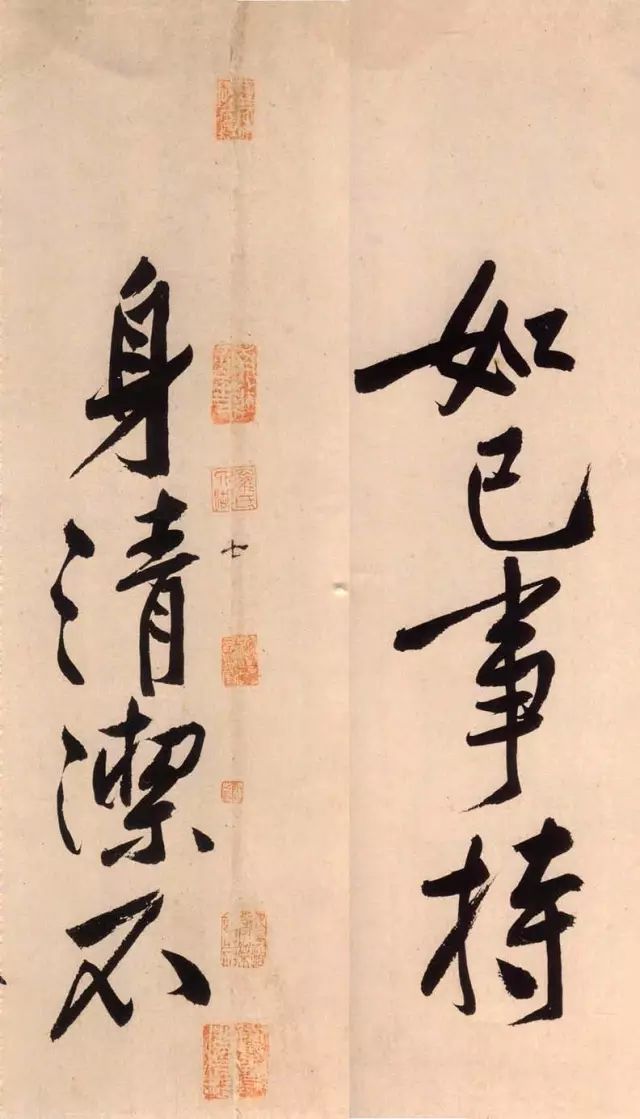 如己事持
七
身清潔不